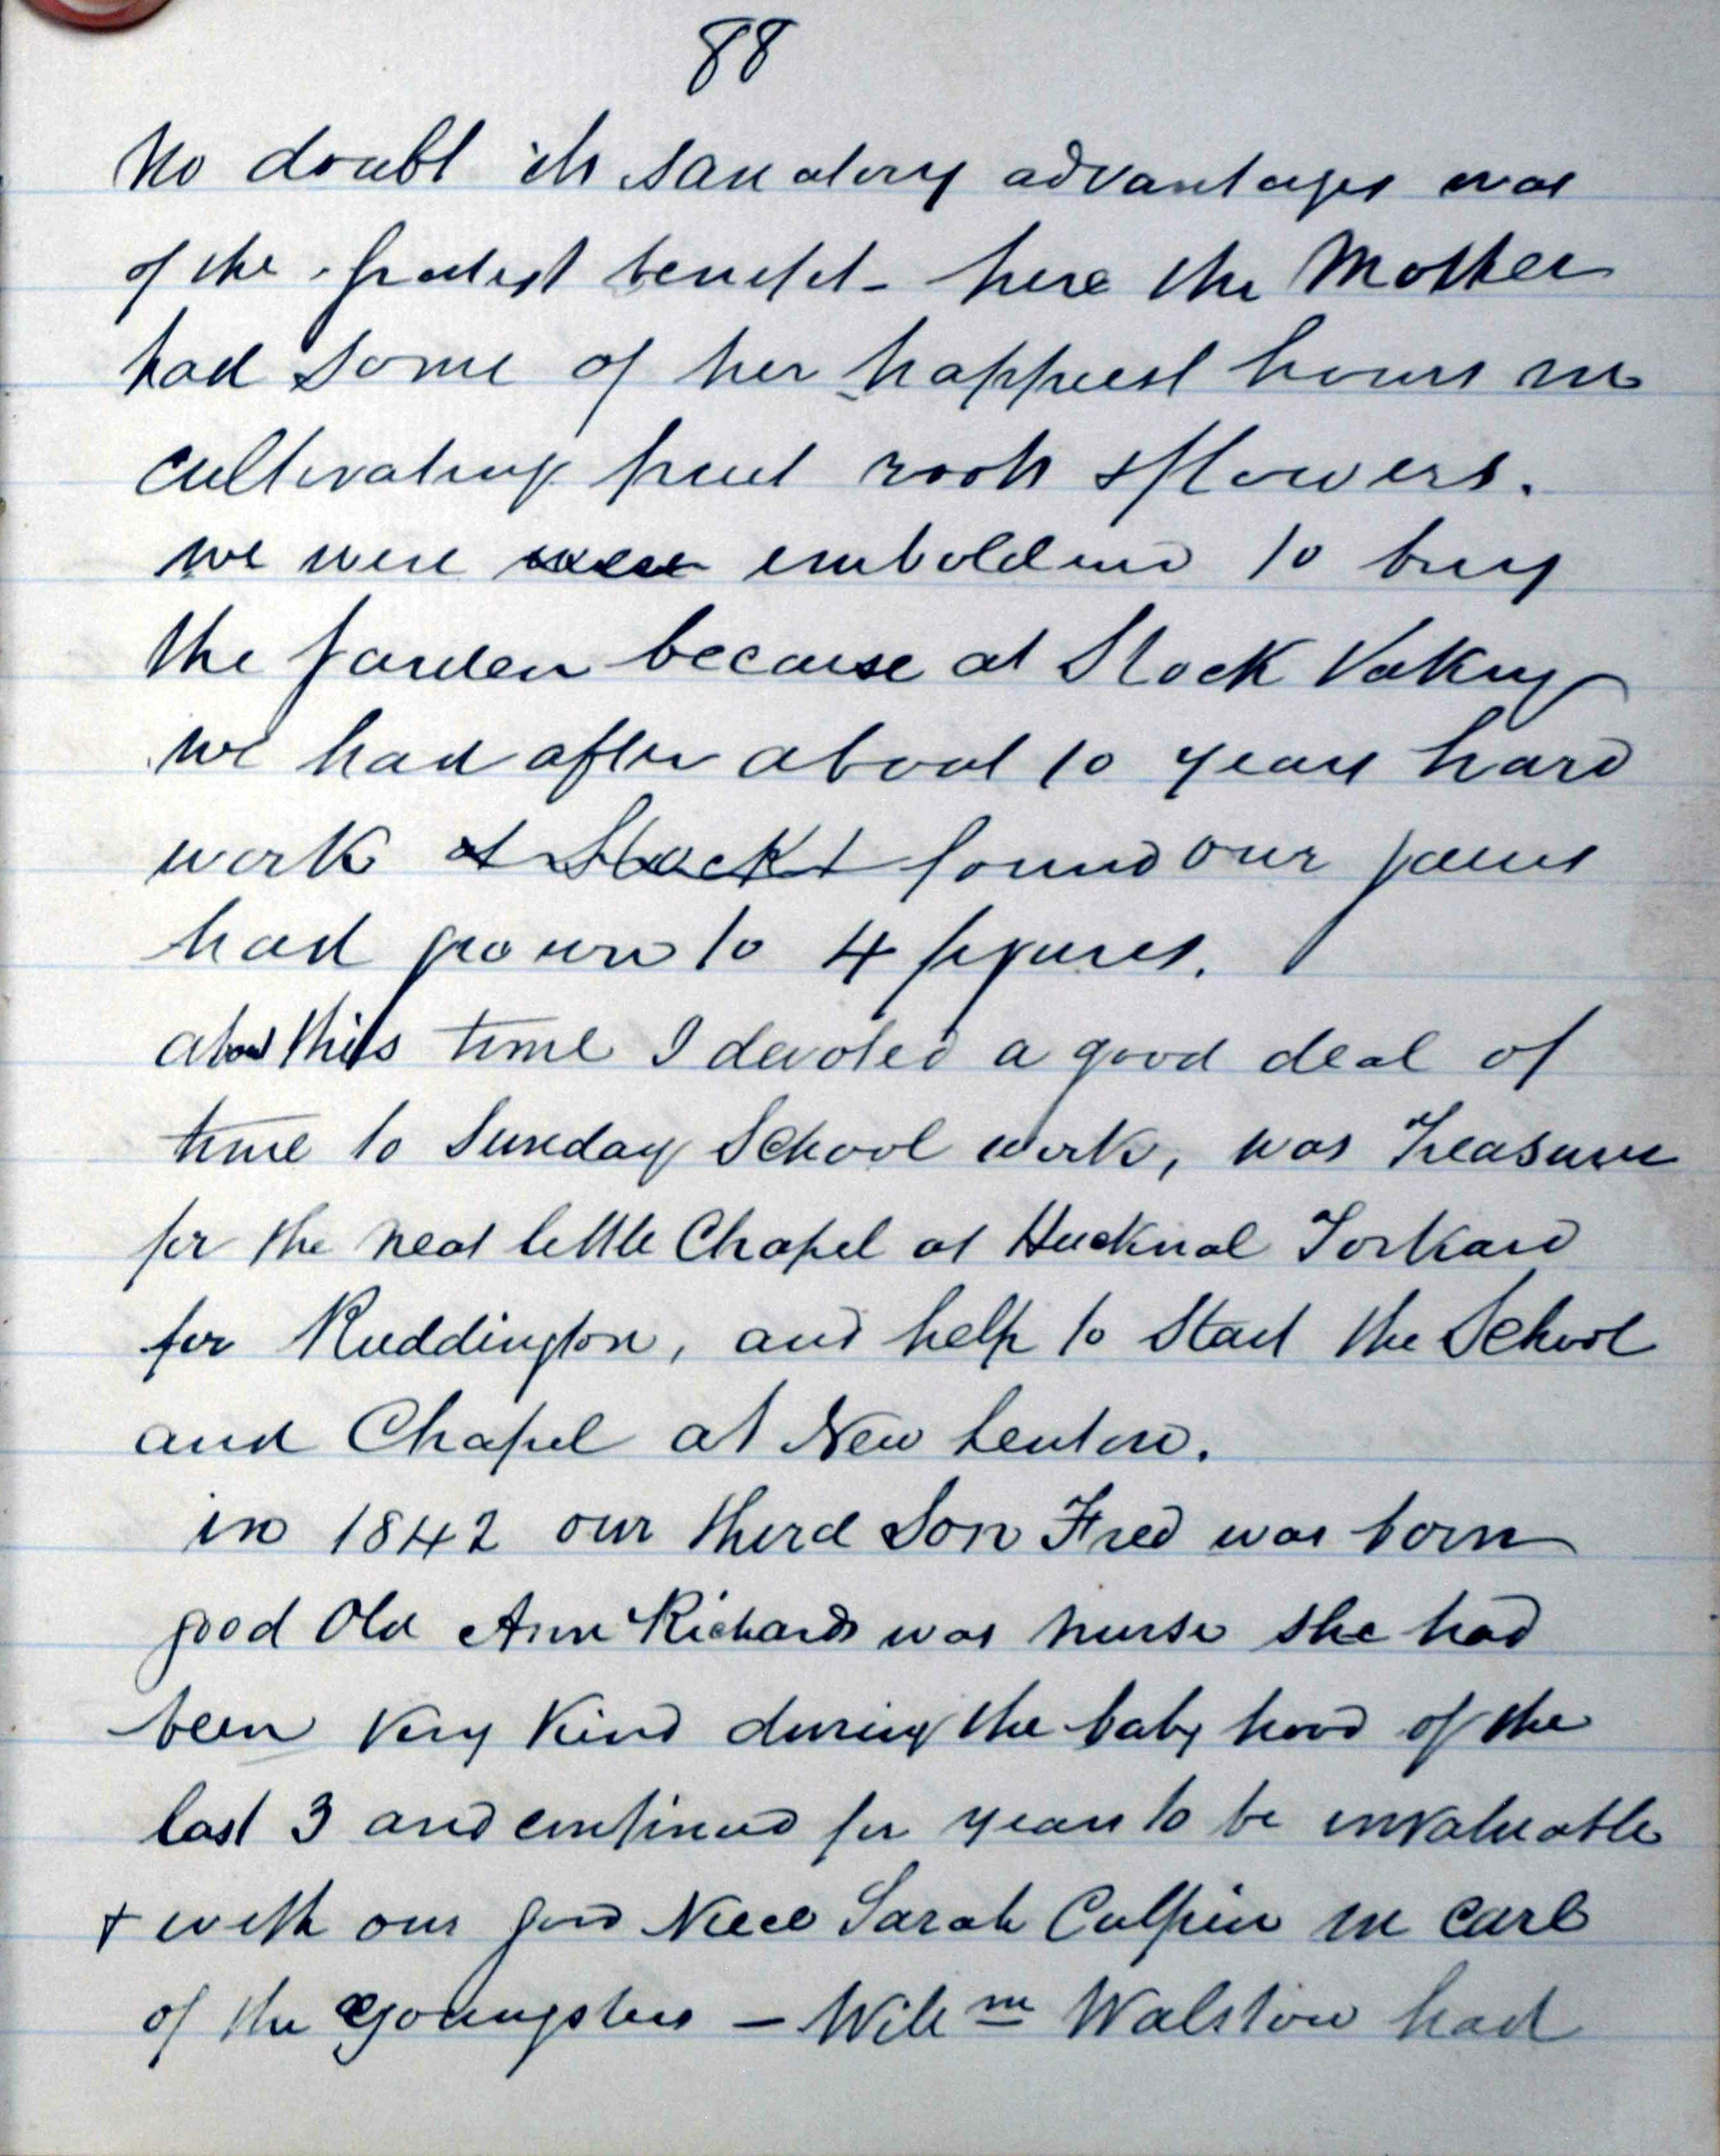 88
No doubt its sanatory advantages was
of the greatest benefit - here the Mother
had some of her happiest hours in
cultivating fruit roots & flowers.
we were were emboldend to buy
the garden because at Stock Taking
we had after about 10 years hard
work at Stockt found our gains
had grown to 4 figures.
about this time I devoted a good deal of
time to Sunday School work, was Treasurer
for the neat little Chapel at Hucknal Torkard
for Ruddington, and help to Start the School
and Chapel at New Lenton.
in 1842 our third Son Fred was born
good Old Ann Richards was nurse she had
been very kind during the baby hood of the
last 3 and continued for years to be invaluable
& with our good Niece Sarah Culpin in care
of the youngsters - Willm Walston had